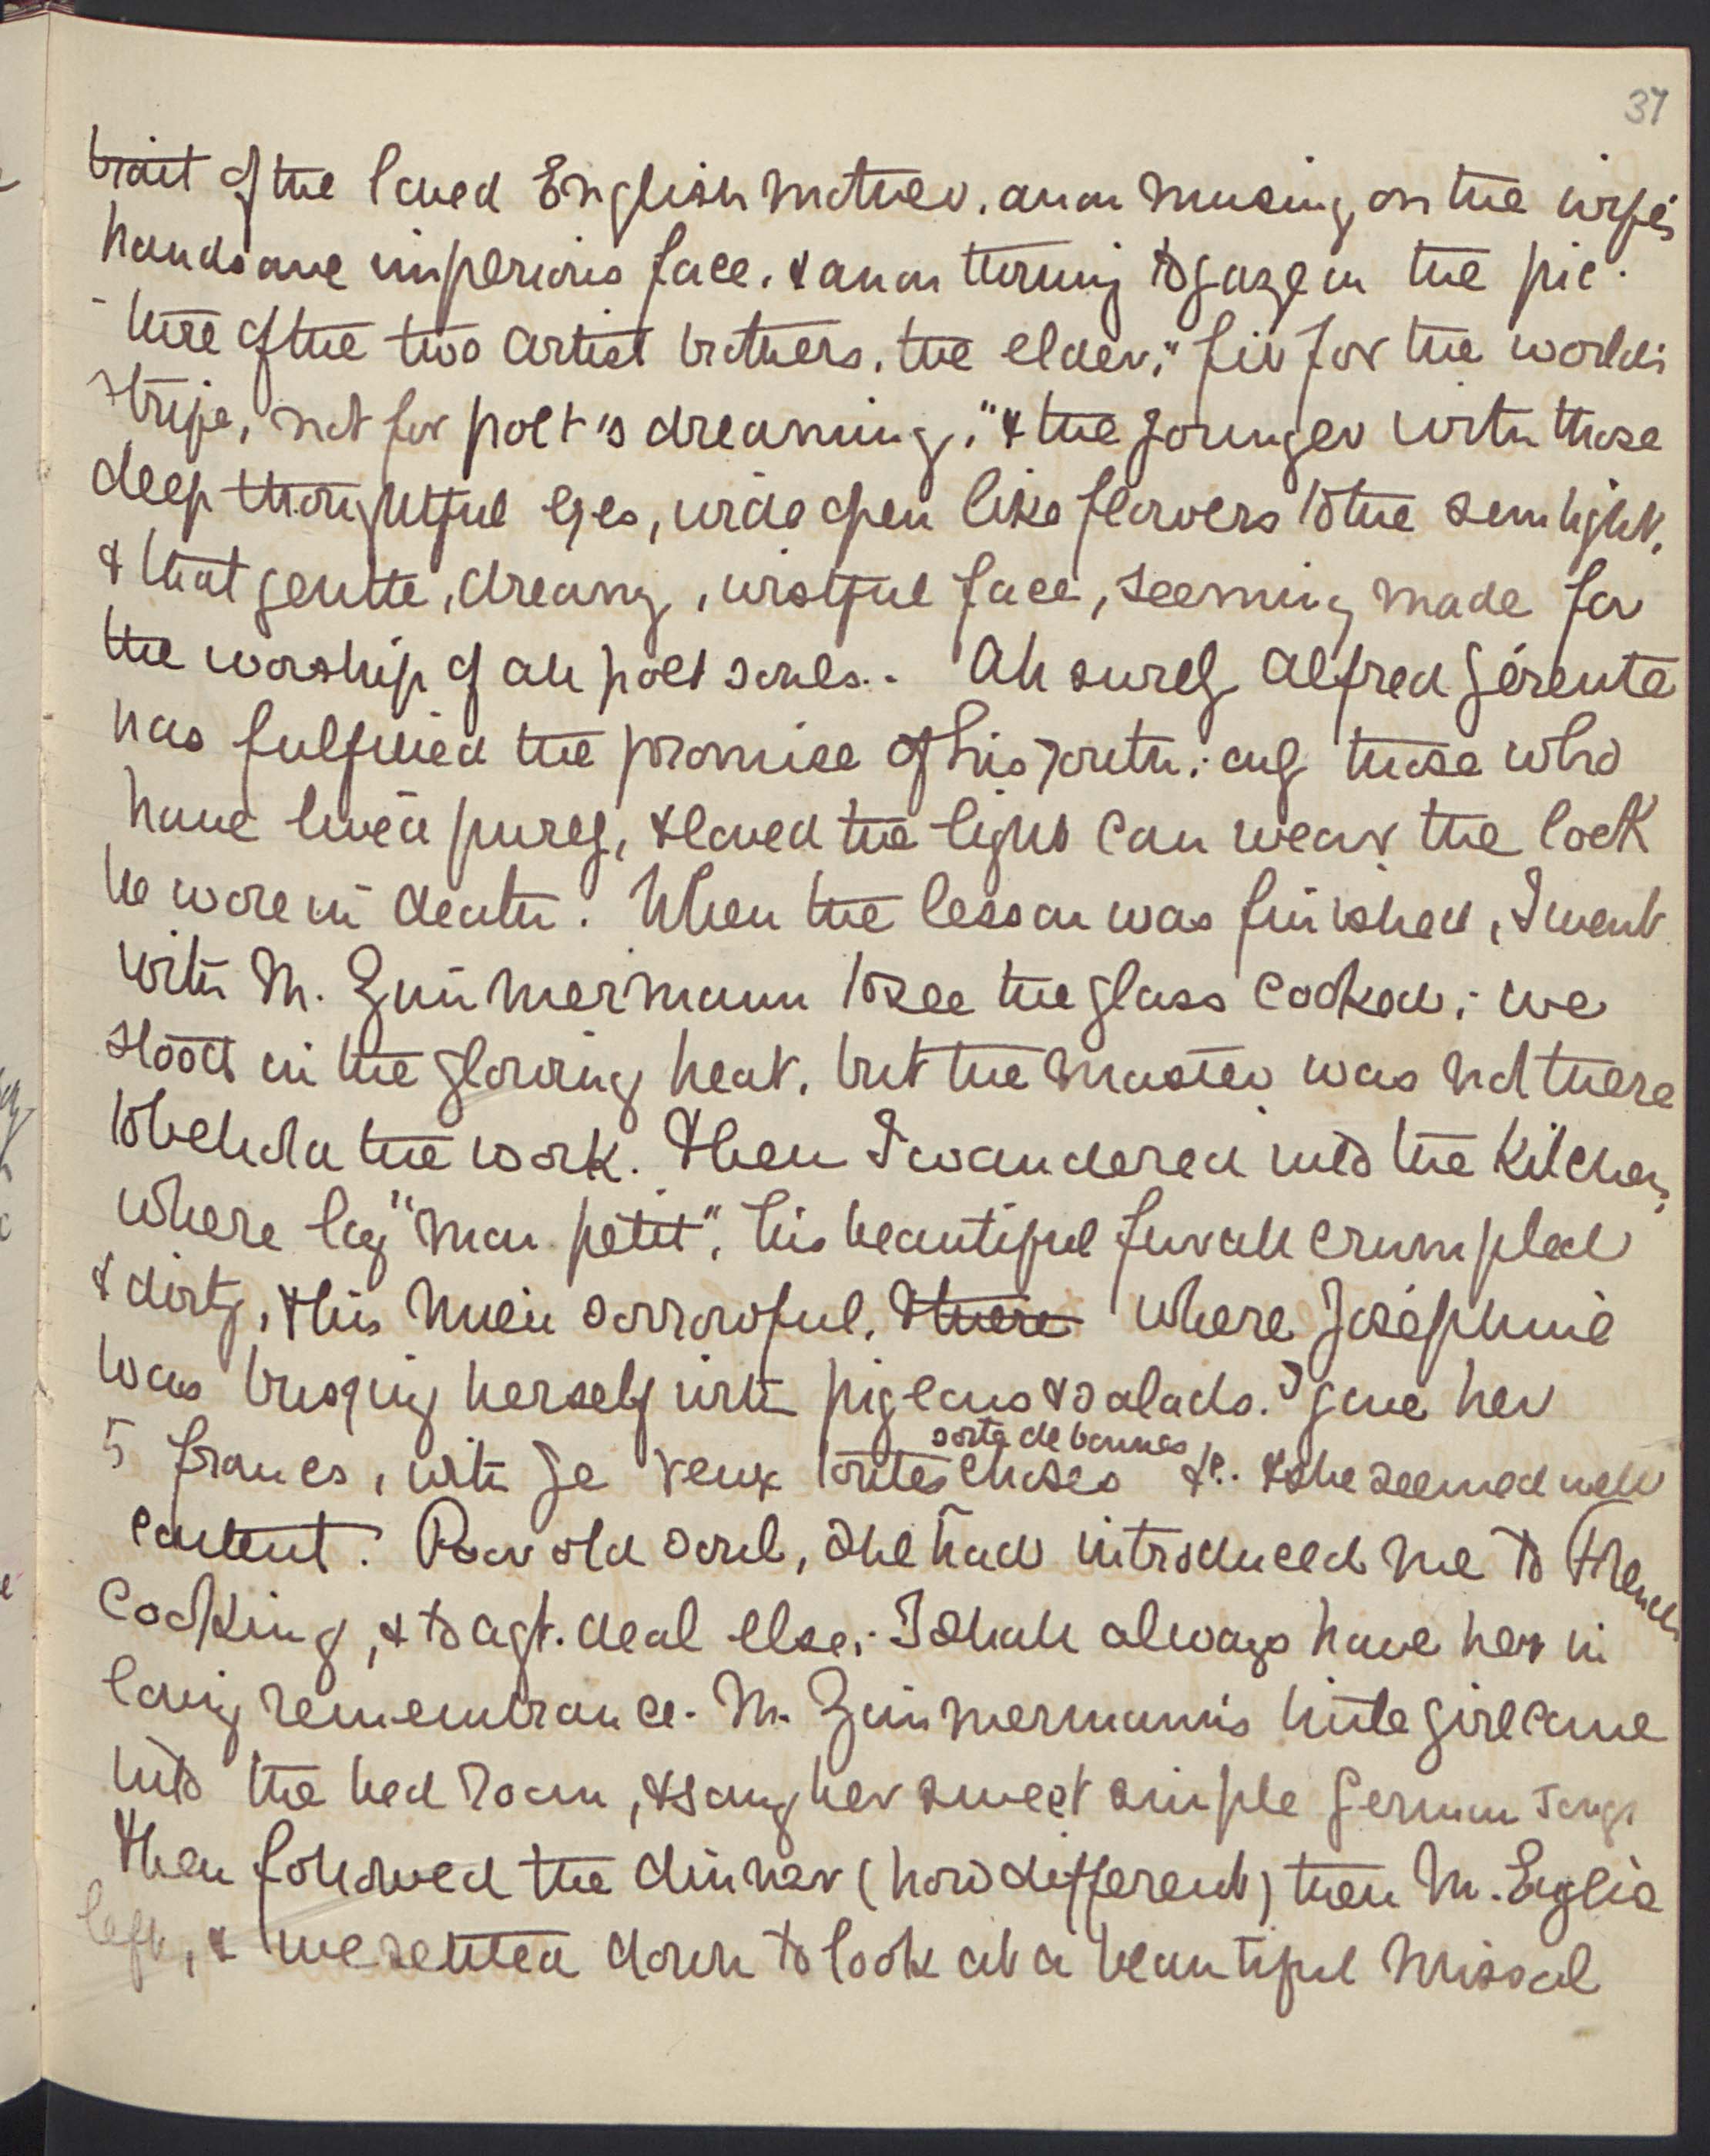 37
trait of the loved English mother. anon musing on the wife's
handsome imperious face. & anon turning to gaze on the pic-
-ture of the two artist brothers. the elder, "fit for the world's
strife, not for poet's dreaming," & the younger with those
deep thoughtful eyes, wide open like flowers to the sunlight,
& that gentle, dreamy, wistful face, seeming made for
the worship of all poet souls.. Ah surely Alfred Gérente
has fulfilled the promise of his youth; only those who
have lived purely, & loved the light can wear the look
he wore in death. When the lesson was finished, I went
with M. Zimmermann to see the glass cooked; we
stood in the glowing heat. but the master was not there
to behold the work. Then I wandered into the kitchen,
where lay "mon petit", his beautiful furall crumpled
& dirty, & his mien sorrowful. & there where Joséphine
was busying herself with pigeons & salads. I gave her
5 francs, with je veux toutes sorte de bonnes choses &c. & she seemed well
content. Poor old soul, she had introduced me to French
cooking, & to a gt. deal else; I shall always have her in
loving remembrance. M. Zimmermann's little girl came
into the bed room, & sang her sweet simple German songs
then followed the dinner (how different) then M. Eglis
left, & we settled down to look at a beautiful missal